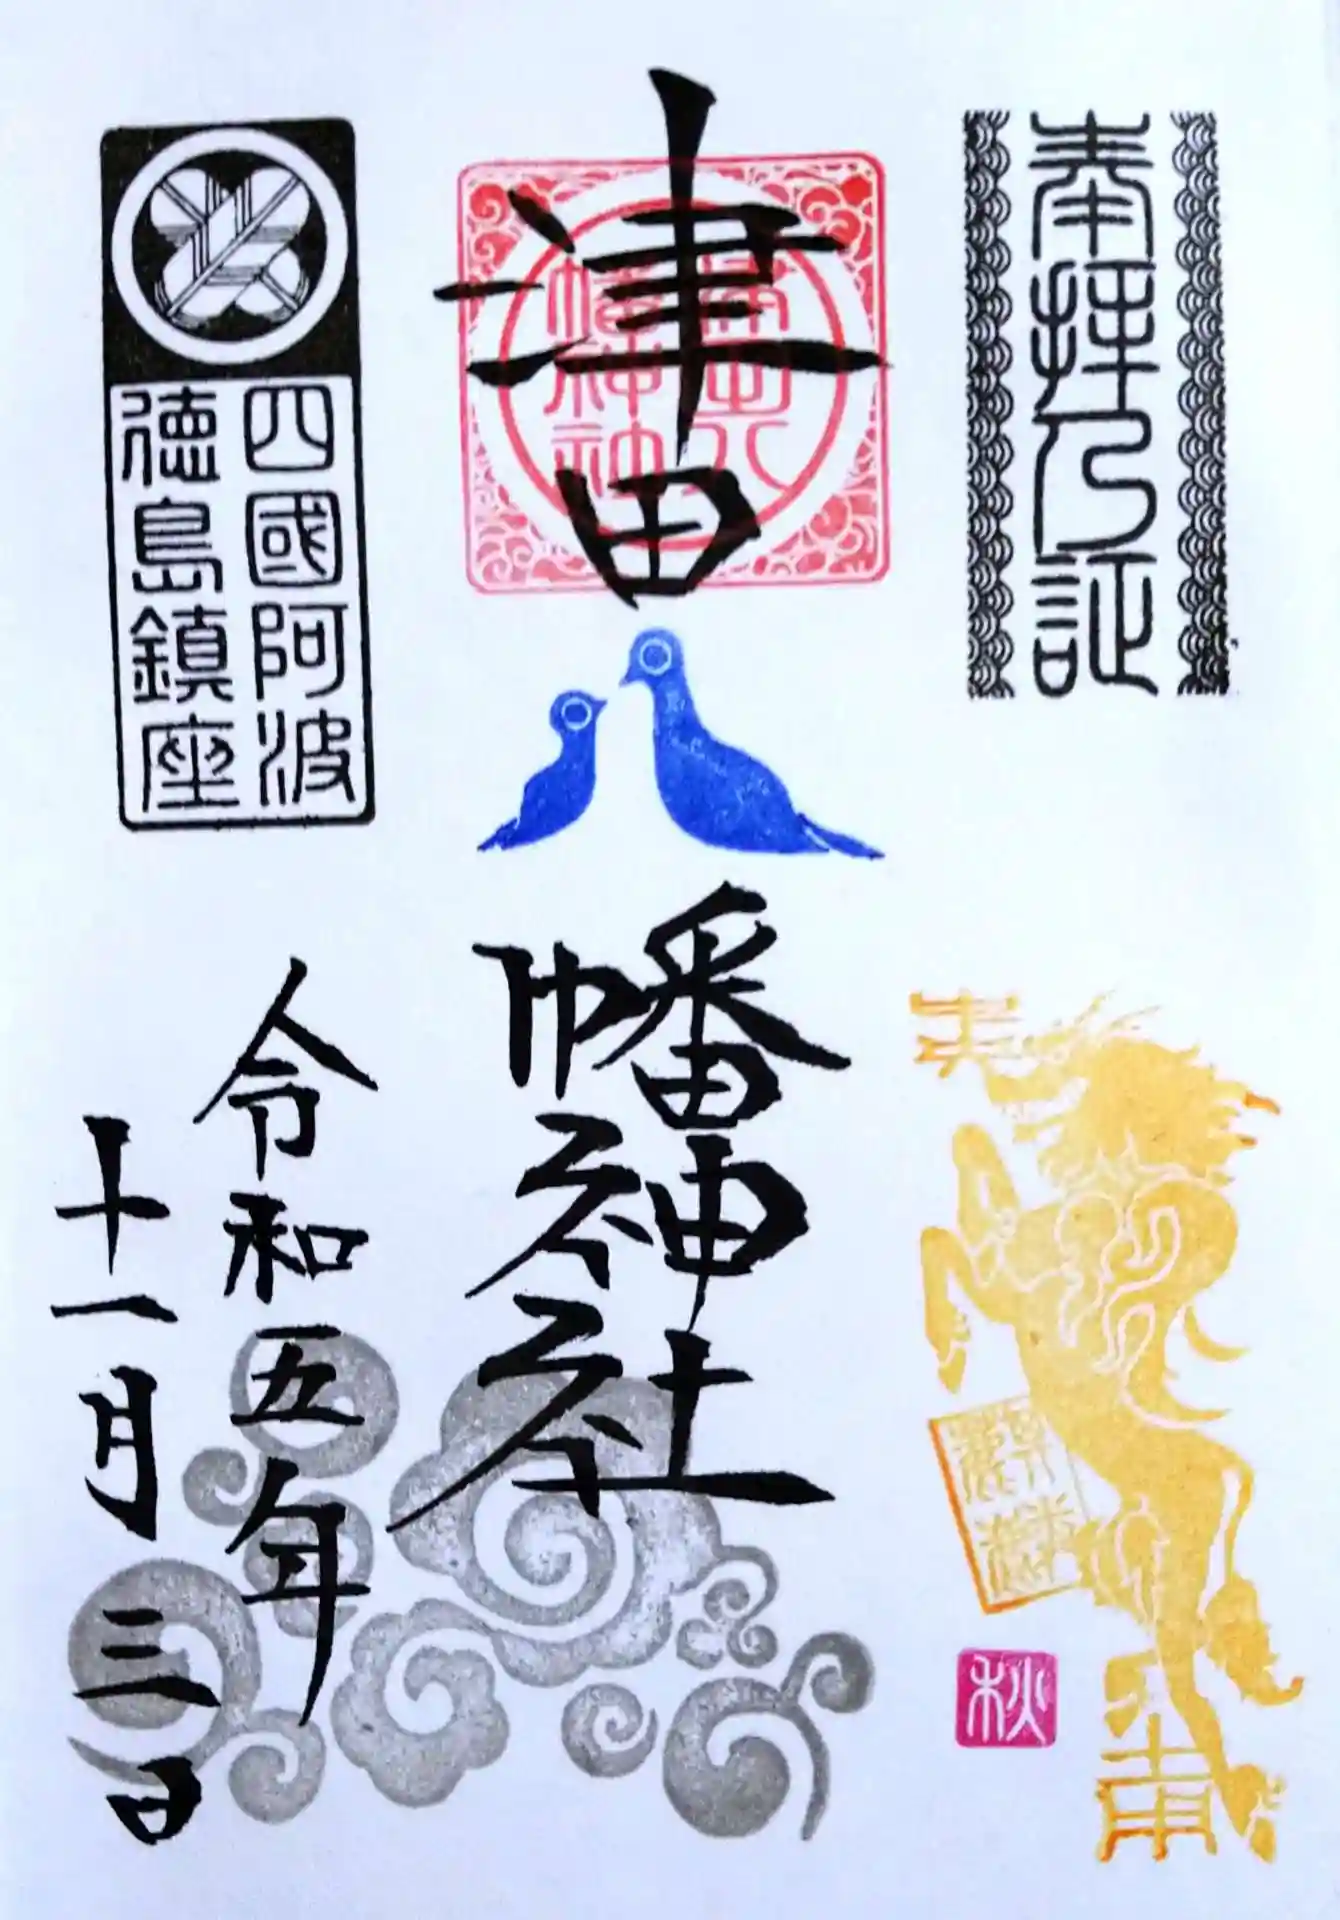 奉拝之証
津田八幡神社
津田八
幡神社
四國阿波
徳島鎮座
令和五年
十一月三日
秋